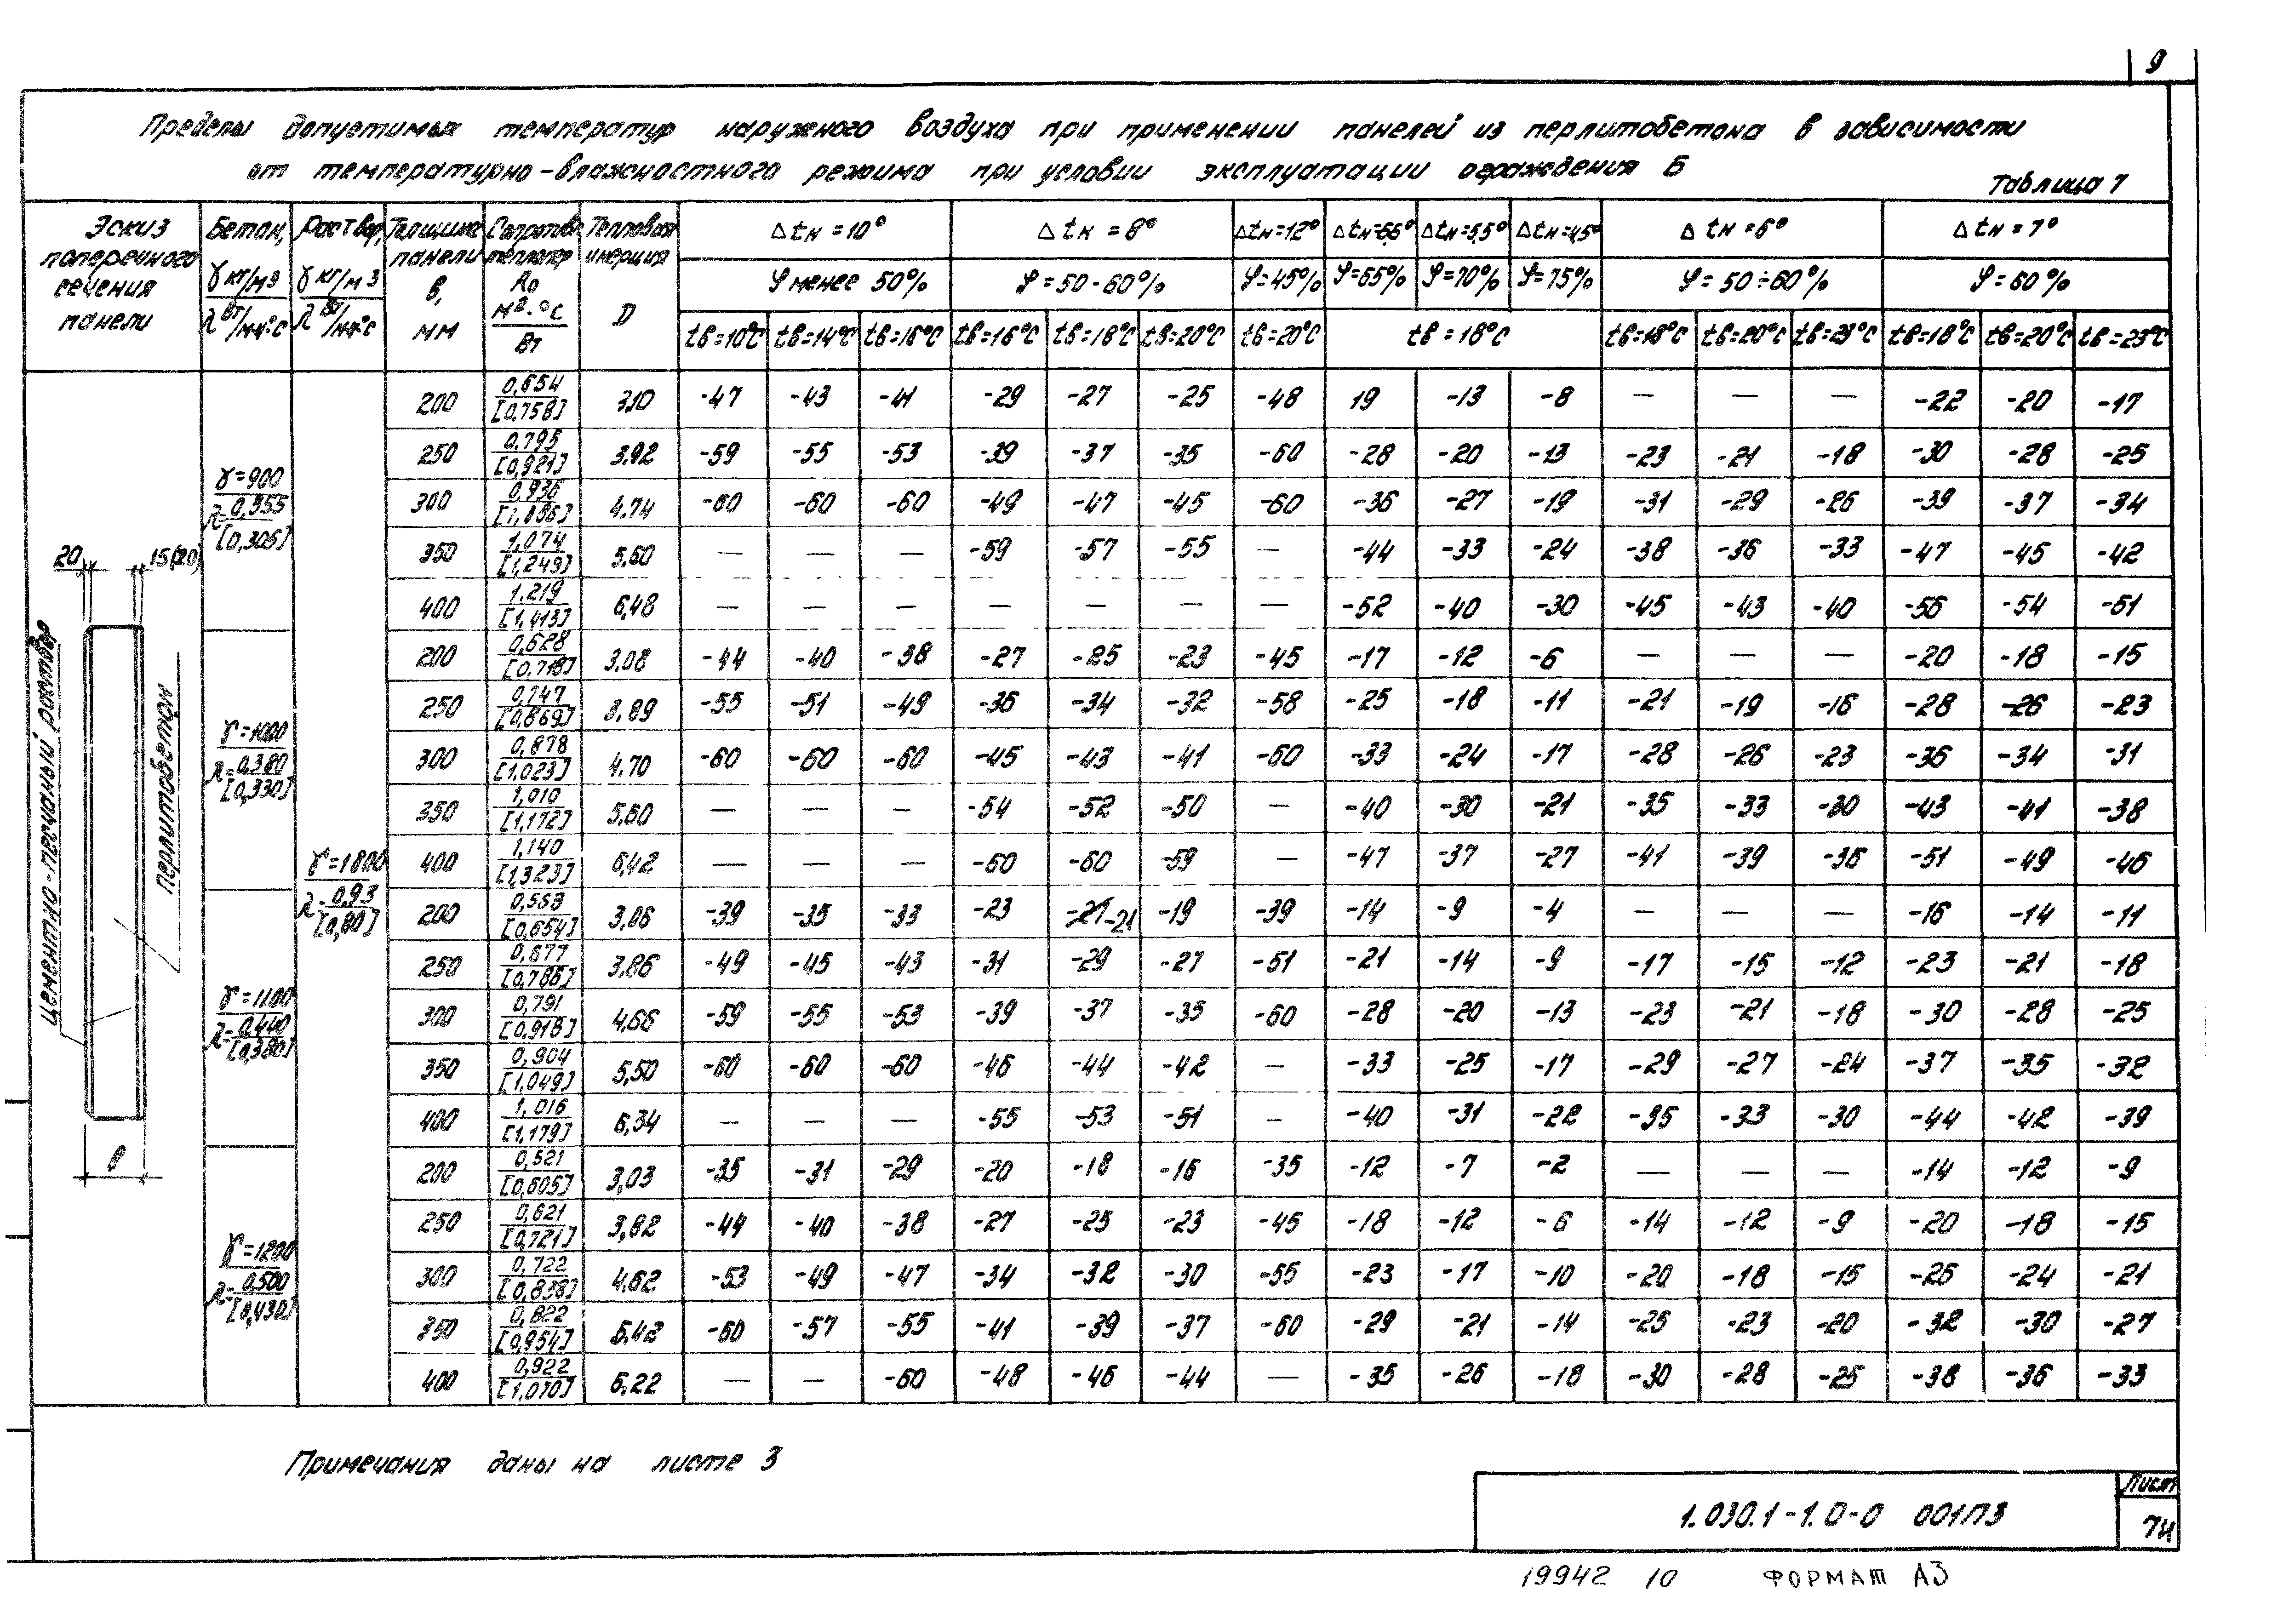 9
Пределы допустимых температур наружного воздуха при применении панелей из перлитобетона в зависимости
от температурно-влажностного режима при условии эксплуатации ограждения Б
Таблица 7
Эскиз поперечного сечения панели
Бетон, γ кг/м3 λ Вт/м·°С
Раствор, γ кг/м3 λ Вт/м·°С
Толщина панели в, мм
Сопротив. теплопер. Ro м²·°С Вт
Тепловая инерция D
Δtн=10° Δtн=8° Δtн=12° Δtн=6,5° Δtн=5,5° Δtн=4,5° Δtн=6° Δtн=7°
φ менее 50% φ=50-60% φ=45% φ=65% φ=70% φ=75% φ=50÷60% φ=60%
tв=10°С tв=14°С tв=16°С tв=16°С tв=18°С tв=20°С tв=20°С tв=18°С tв=18°С tв=20°С tв=23°С tв=18°С tв=20°С tв=23°С
20 15(20)
цементно-песчаный раствор
перлитобетон
в
γ=1800
λ=0,93
[0,80]
γ=900
λ=0,355
[0,305]
200 0,654 [0,758] 3,10 -47 -43 -41 -29 -27 -25 -48 19 -13 -8 — — — -22 -20 -17
250 0,795 [0,921] 3,92 -59 -55 -53 -39 -37 -35 -60 -28 -20 -13 -23 -21 -18 -30 -28 -25
300 0,936 [1,086] 4,74 -60 -60 -60 -49 -47 -45 -60 -36 -27 -19 -31 -29 -26 -39 -37 -34
350 1,074 [1,249] 5,60 — — — -59 -57 -55 — -44 -33 -24 -38 -36 -33 -47 -45 -42
400 1,219 [1,413] 6,48 — — — — — — — -52 -40 -30 -45 -43 -40 -56 -54 -51
γ=1000
λ=0,380
[0,330]
200 0,628 [0,718] 3,08 -44 -40 -38 -27 -25 -23 -45 -17 -12 -6 — — — -20 -18 -15
250 0,747 [0,869] 3,89 -55 -51 -49 -36 -34 -32 -58 -25 -18 -11 -21 -19 -16 -28 -26 -23
300 0,878 [1,023] 4,70 -60 -60 -60 -45 -43 -41 -60 -33 -24 -17 -28 -26 -23 -36 -34 -31
350 1,010 [1,172] 5,60 — — — -54 -52 -50 — -40 -30 -21 -35 -33 -30 -43 -41 -38
400 1,140 [1,323] 6,42 — — — -60 -60 -59 — -47 -37 -27 -41 -39 -36 -51 -49 -46
γ=1100
λ=0,440
[0,380]
200 0,563 [0,654] 3,06 -39 -35 -33 -23 -21 -19 -39 -14 -9 -4 — — — -16 -14 -11
250 0,677 [0,786] 3,86 -49 -45 -43 -31 -29 -27 -51 -21 -14 -9 -17 -15 -12 -23 -21 -18
300 0,791 [0,918] 4,66 -59 -55 -53 -39 -37 -35 -60 -28 -20 -13 -23 -21 -18 -30 -28 -25
350 0,904 [1,049] 5,50 -60 -60 -60 -46 -44 -42 — -33 -25 -17 -29 -27 -24 -37 -35 -32
400 1,016 [1,179] 6,34 — — — -55 -53 -51 — -40 -31 -22 -35 -33 -30 -44 -42 -39
γ=1200
λ=0,500
[0,430]
200 0,521 [0,605] 3,03 -35 -31 -29 -20 -18 -16 -35 -12 -7 -2 — — — -14 -12 -9
250 0,621 [0,721] 3,82 -44 -40 -38 -27 -25 -23 -45 -18 -12 -6 -14 -12 -9 -20 -18 -15
300 0,722 [0,838] 4,62 -53 -49 -47 -34 -32 -30 -55 -23 -17 -10 -20 -18 -15 -26 -24 -21
350 0,822 [0,954] 5,42 -60 -57 -55 -41 -39 -37 -60 -29 -21 -14 -25 -23 -20 -32 -30 -27
400 0,922 [1,070] 6,22 — — -60 -48 -46 -44 — -35 -26 -18 -30 -28 -25 -38 -36 -33
Примечания даны на листе 3
1.030.1-1.0-0 001ПЗ
Лист
7и
19942 10 ФОРМАТ А3